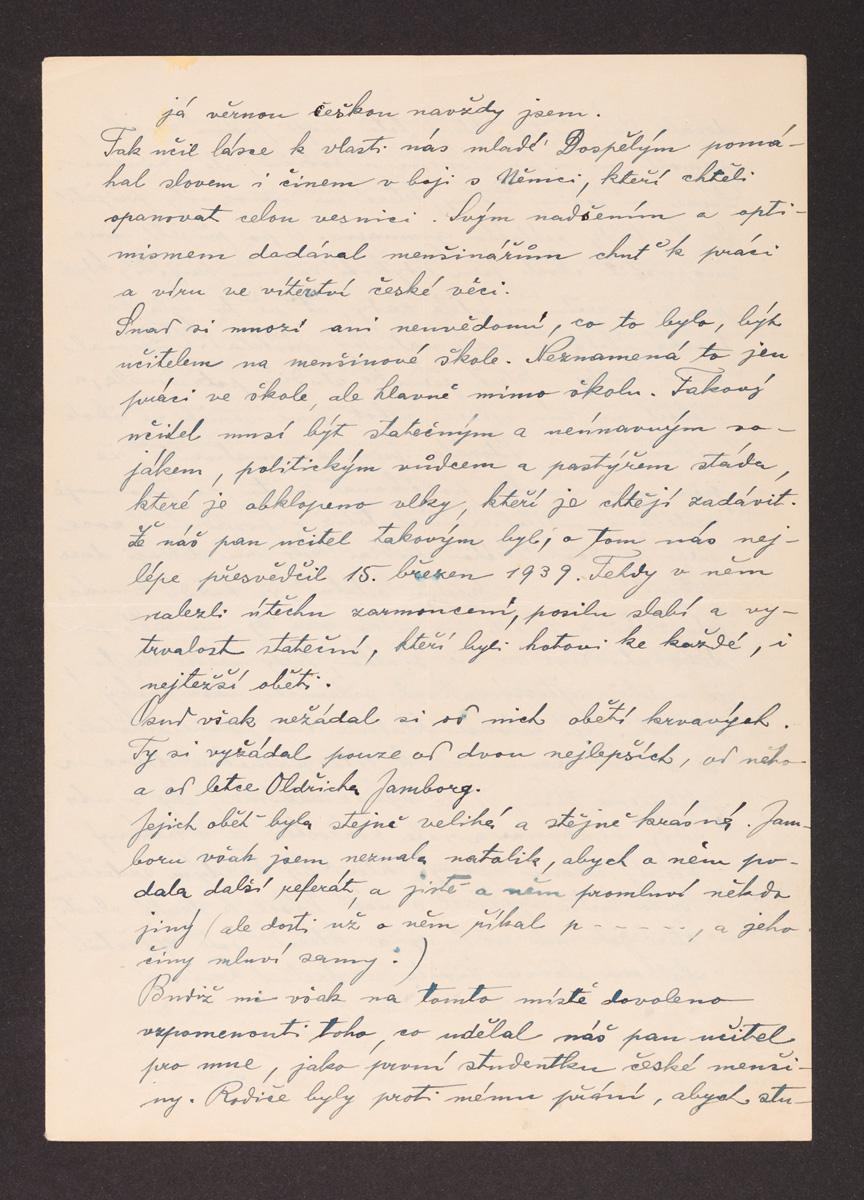 já věrnou češkou navždy jsem.
Tak učil lásce k vlasti nás mladé. Dospělým pomá-
hal slovem i činem v boji s Němci, kteří chtěli
opanovat celou vesnici. Svým nadšením a opti-
mismem dodával menšinářům chuť k práci
a víru ve vítěztví české věci.
Snad si mnozí ani neuvědomí, co to bylo, být
učitelem na menšinové škole. Neznamená to jen
práci ve škole, ale hlavně mimo školu. Takový
učitel musí být statečným a neúnavným vo-
jákem, politickým vůdcem a pastýřem stáda,
které je obklopeno vlky, kteří je chtějí zadávit.
Že náš pan učitel takovým byl, o tom nás nej-
lépe přesvědčil 15. březen 1939. Tehdy v něm
nalezli útěchu zarmoucení, posilu slabí a vy-
trvalost stateční, kteří byli hotovi ke každé, i
nejtežší oběti.
Osud však nežádal si od nich obětí krvavých.
Ty si vyžádal pouze od dvou nejlepších, od něho
a od letce Oldřicha Jamborg.
Jejich oběť byla stejně veliká a stějně krásná. Jam-
boru však jsem neznala natolik, abych o něm po-
dala další referát, a jistě o něm promluví někdo
jiný (ale dosti už o něm říkal p - - - - - -, a jeho
činy mluví samy.)
Budiž mi však na tomto místě dovoleno
vzpomenouti toho, co udělal náš pan učitel
pro mne, jako první studentku české menši-
ny. Rodiče byly proti mému přání, abych stu-